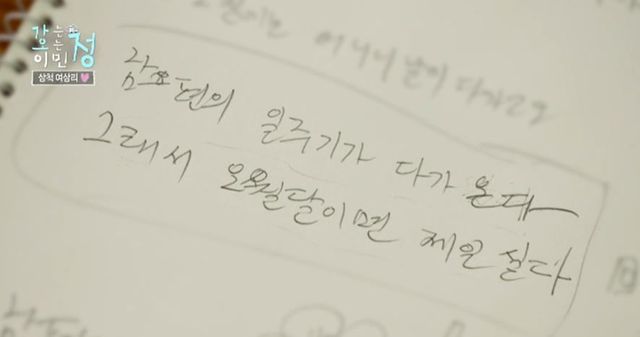 가는
오는
이민정
삼척 여삼리
어머니 날이 다가오고
남편의 일주기가 다가 온다
그래서 오월달이면 제일 싫다